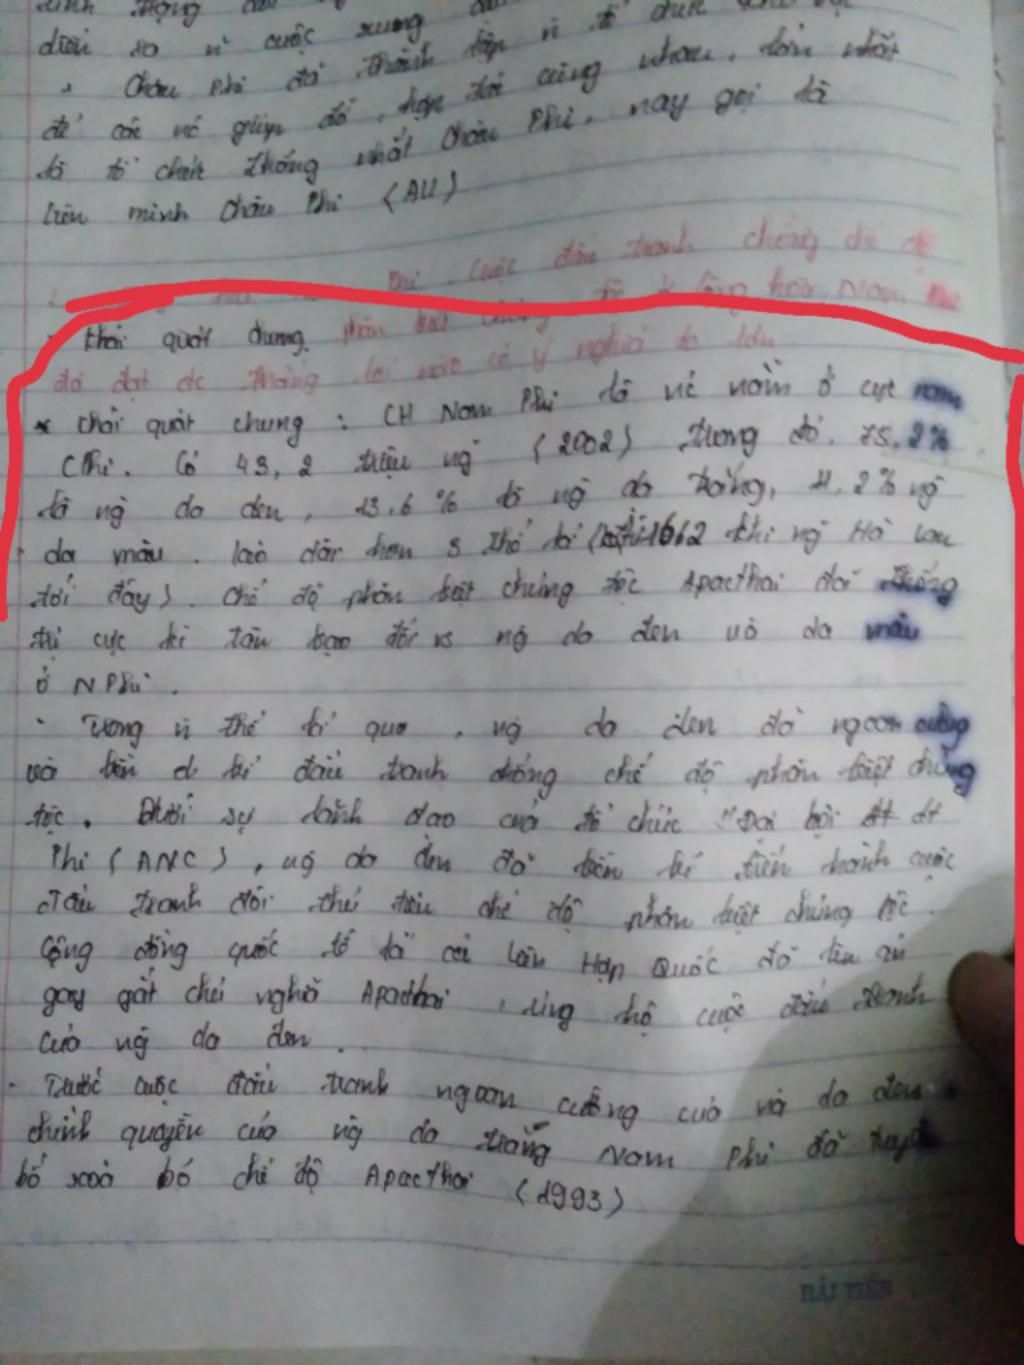 diễn ra vì cuộc xung
Châu Phi đã thành lập
để các nc giúp đỡ, hợp tác cùng nhau, lớn nhất
là tổ chức thống nhất Châu Phi, nay gọi là
liên minh Châu Phi (AU)
Phi cuộc đấu tranh chống chế độ
cộng hoà Nam
Khái quát chung. phân biệt chủng
đã đạt đc thắng lợi nào có ý nghĩa to lớn
* Khái quát chung : CH Nam Phi là nc nằm ở cực nam
CPhi. Có 43,2 triệu ng (2002) trong đó. 75.2%
là ng da đen, 13,6 % là ng da trắng, 11,2% ng
da màu. kéo dài hơn 3 thế kỉ 1662 khi ng Hà Lan
tới đấy). Chế độ phân biệt chủng tộc Apacthai đã thống
trị cực kì tàn bạo đối vs ng da đen và da màu
ở N Phi.
- Trong thế kỉ qua, ng da đen đã ngoan cường
và bền bỉ đấu tranh chống chế độ phân biệt chủng
tộc. Dưới sự lãnh đạo của tổ chức "Đại hội
Phi (ANC), ng da đen đã bền bỉ tiến hành cuộc
đấu tranh đòi thủ tiêu chế độ phân biệt chủng tộc.
Cộng đồng quốc tế kể cả Liên Hợp Quốc đã lên án
gay gắt chủ nghĩa Apacthai, ủng hộ cuộc đấu tranh
của ng da đen.
- Trước cuộc đấu tranh ngoan cường của ng da đen
chính quyền của ng da trắng Nam Phi đã tuyên
bố xoá bỏ chế độ Apacthai (1993)
HẢI TIẾN